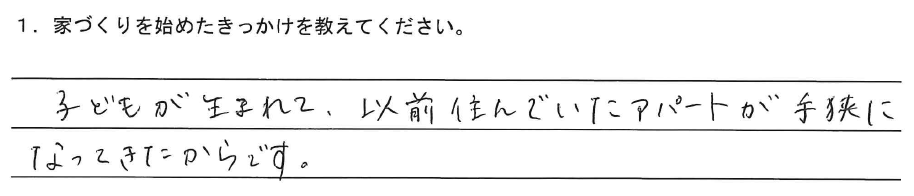 1. 家づくりを始めたきっかけを教えてください。
子どもが生まれて、以前住んでいたアパートが手狭に
なってきたからです。